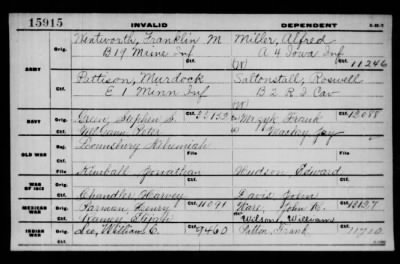 15915 INVALID DEPENDENT
Wentworth, Franklin M Miller, Alfred
Orig. B 19 Maine Inf A 4 Iowa Inf
ARMY Ctf. 11246
Pattison, Murdock Saltonstall, Roswell
Ctf. E 1 Minn Inf B 2 R I Cav
NAVY Orig. Stephen S. Ctf. Frank Ctf.
Ctf. Peter Jay
OLD WAR Rej. Lounsbury Nehemiah
Ctf. File File
Kimball Jonathan Hudson, Edward
WAR OF 1812
Chandler Harvey Davis John
MEXICAN WAR Orig. Harman Henry Ctf. 11091 Ware, John Ctf.
Ctf. Elijah Wilson, Williams
INDIAN WAR Orig. Lee, William C. Ctf. 9460 Frank Ctf. 11710
Ctf.